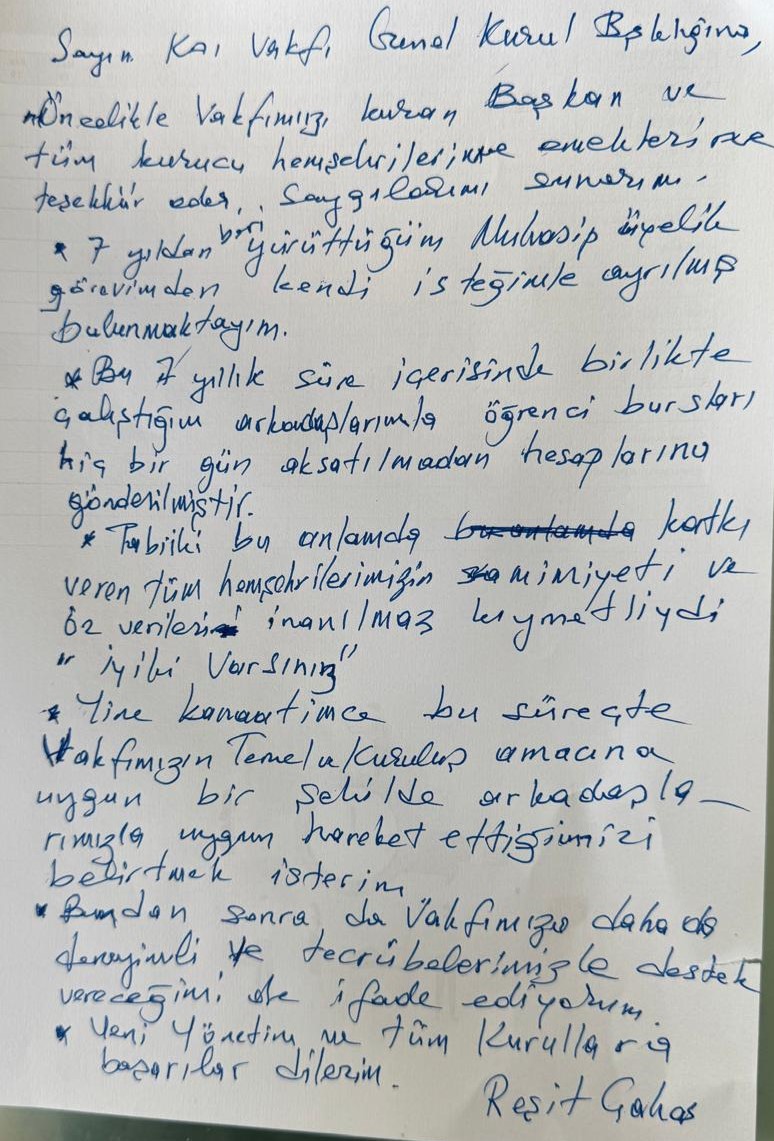 Sayın Kai Vakfı Genel Kurul Bşklığına,
Öncelikle Vakfımızı kuran Başkan ve
tüm kurucu hemşehrilerime emekleri
teşekkür eder, Saygılarımı sunarım.
* 7 yıldan beri yürüttüğüm Muhasip üyelik
görevimden kendi isteğimle ayrılmış
bulunmaktayım.
* Bu 7 yıllık süre içerisinde birlikte
çalıştığım arkadaşlarımla öğrenci bursları
hiç bir gün aksatılmadan hesaplarına
gönderilmiştir.
* Tabiiki bu anlamda katkı
veren tüm hemşehrilerimizin samimiyeti ve
öz verileri inanılmaz kıymetliydi
" iyiki Varsınız"
* Yine kanaatimce bu süreçte
Vakfımızın Temel Kuruluş amacına
uygun bir şekilde arkadaşla-
rımızla uygun hareket ettiğimizi
belirtmek isterim
* Bundan sonra da Vakfımıza daha da
deneyimli ve tecrübelerimizle destek
vereceğimi de ifade ediyorum.
* Yeni Yönetim ve tüm Kurullara
başarılar dilerim.
Reşit